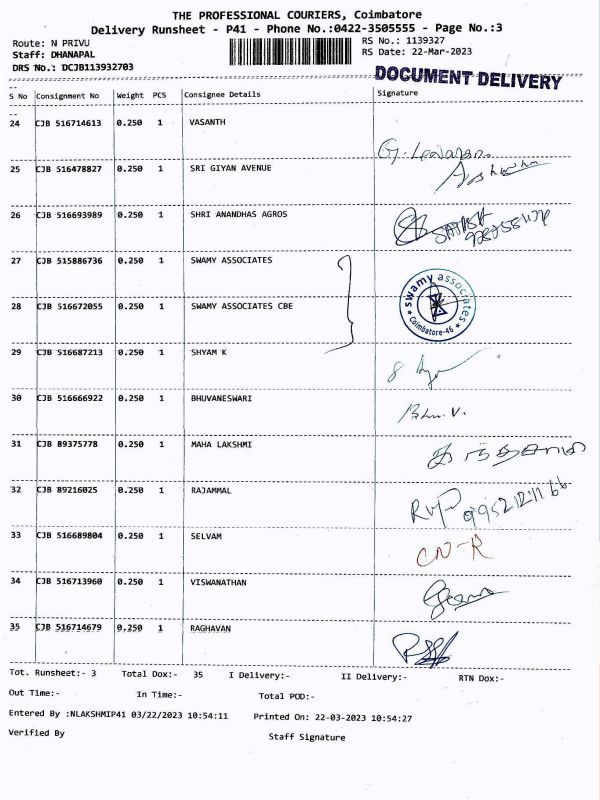 THE PROFESSIONAL COURIERS, Coimbatore
Delivery Runsheet - P41 - Phone No.:0422-3505555 - Page No.:3
Route: N PRIVU
RS No.: 1139327
Staff: DHANAPAL
RS Date: 22-Mar-2023
DRS No.: DCJB113932703
DOCUMENT DELIVERY
S No Consignment No Weight PCS Consignee Details Signature
24 CJB 516714613 0.250 1 VASANTH
25 CJB 516478827 0.250 1 SRI GIYAN AVENUE
26 CJB 516693989 0.250 1 SHRI ANANDHAS AGROS
27 CJB 515886736 0.250 1 SWAMY ASSOCIATES
swamy associates
Coimbatore-46
28 CJB 516672055 0.250 1 SWAMY ASSOCIATES CBE
29 CJB 516687213 0.250 1 SHYAM K
30 CJB 516666922 0.250 1 BHUVANESWARI
31 CJB 89375778 0.250 1 MAHA LAKSHMI
32 CJB 89216025 0.250 1 RAJAMMAL
33 CJB 516689804 0.250 1 SELVAM CN-R
34 CJB 516713960 0.250 1 VISWANATHAN
35 CJB 516714679 0.250 1 RAGHAVAN
Tot. Runsheet:- 3 Total Dox:- 35 I Delivery:- II Delivery:- RTN Dox:-
Out Time:- In Time:- Total POD:-
Entered By :NLAKSHMIP41 03/22/2023 10:54:11 Printed On: 22-03-2023 10:54:27
Verified By Staff Signature